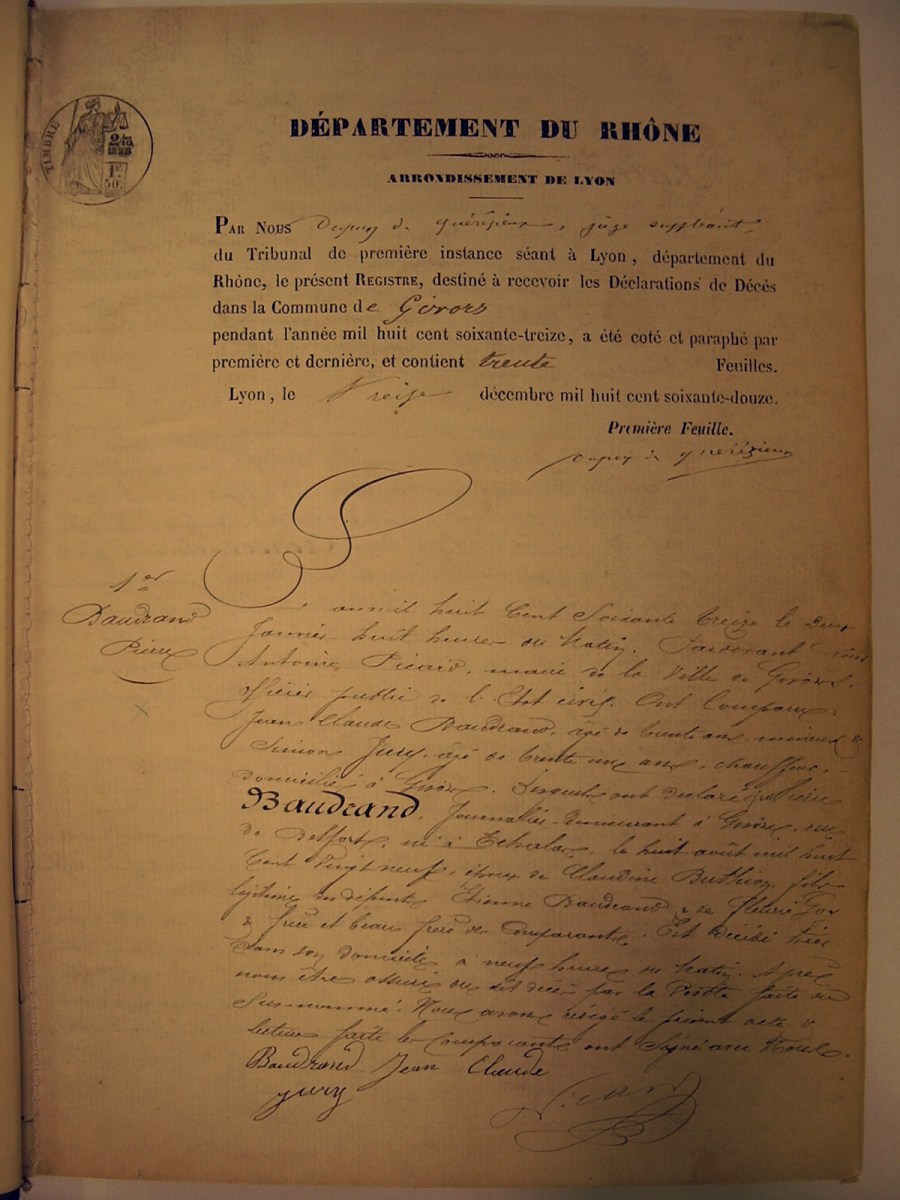 TIMBRE
2/10
EN SUS
1F
50C
DÉPARTEMENT DU RHÔNE
ARRONDISSEMENT DE LYON
PAR NOUS Dupuy de Quérézieux, juge suppléant
du Tribunal de première instance séant à Lyon, département du
Rhône, le présent REGISTRE, destiné à recevoir les Déclarations de Décès
dans la Commune de Givors
pendant l'année mil huit cent soixante-treize, a été coté et paraphé par
première et dernière, et contient trente Feuilles.
Lyon, le treize décembre mil huit cent soixante-douze.
Première Feuille.
Dupuy de Quérézieux
1er
Baudrand
Pierre
an mil huit Cent Soixante treize le Deux
Janvier huit heures du Matin. Pardevant nous
Antoine Picard, maire de la Ville de Givors,
officier public de l'Etat civil. Ont Comparu
Jean Claude Baudrand, âgé de trente ans, mineur &
Simon Jury, âgé de trente un ans, chauffeur,
domicilié à Givors. Lesquels ont déclaré que Pierre
Baudrand, Journalier, demeurant à Givors, rue
de Belfort, né à Echalas, le huit août mil huit
Cent Vingt neuf, époux de Claudine Buthion, fils
légitime des défunts Etienne Baudrand & de Fleurie
& frère et beau frère des Comparants. Est décédé hier
dans son domicile à neuf heures du Matin. Après
nous être assuré du dit décès par la Visite faite du
Sus-nommé. Nous avons rédigé le présent acte &
lecture faite les Comparants ont Signé avec Nous.
Baudrand Jean Claude
jury
Picard